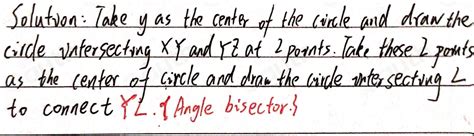 Solution: Take y as the center of the circle and draw the
circle intersecting XY and YZ at 2 points. Take these 2 points
as the center of circle and draw the circle intersecting L
to connect YL. {Angle bisector.}